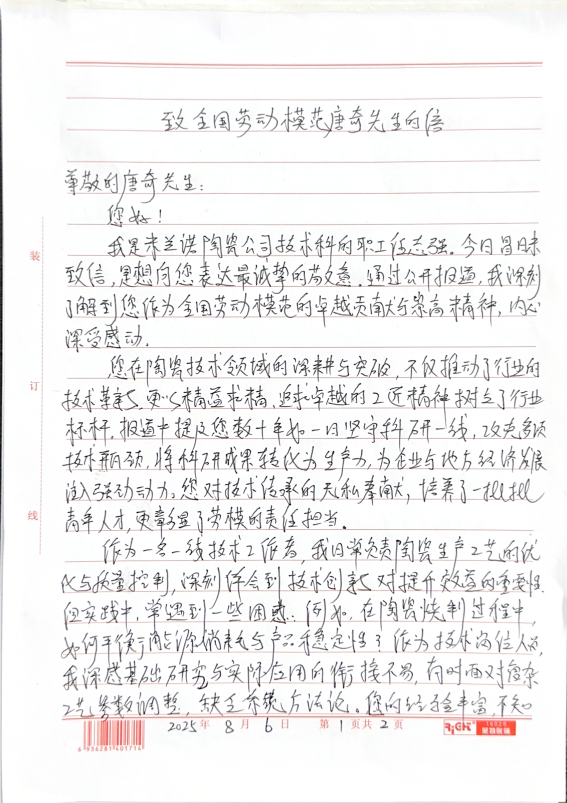 致全国劳动模范唐奇先生的信
尊敬的唐奇先生：
您好！
我是米兰诺陶瓷公司技术科的职工任志强。今日冒昧
致信，是想向您表达最诚挚的敬意。通过公开报道，我深刻
了解到您作为全国劳动模范的卓越贡献与崇高精神，内心
深受感动。
您在陶瓷技术领域的深耕与突破，不仅推动了行业的
技术革新，更以精益求精、追求卓越的工匠精神树立了行业
标杆。报道中提及您数十年如一日坚守科研一线，攻克多项
技术瓶颈，将科研成果转化为生产力，为企业与地方经济发展
注入强劲动力。您对技术传承的无私奉献，培养了一批批
青年人才，更彰显了劳模的责任担当。
作为一名一线技术工作者，我日常负责陶瓷生产工艺的优
化与质量控制，深刻体会到技术创新对提升效益的重要性。
但实践中，常遇到一些困惑。例如，在陶瓷烧制过程中，
如何平衡能源消耗与产品稳定性？作为技术岗位人员，
我深感基础研究与实际应用的衔接不易，有时面对复杂
工艺参数调整，缺乏系统方法论。您的经验丰富，不知
装
订
线
2025年 8月 6日 第1页共2页
6936281401714
RiCH